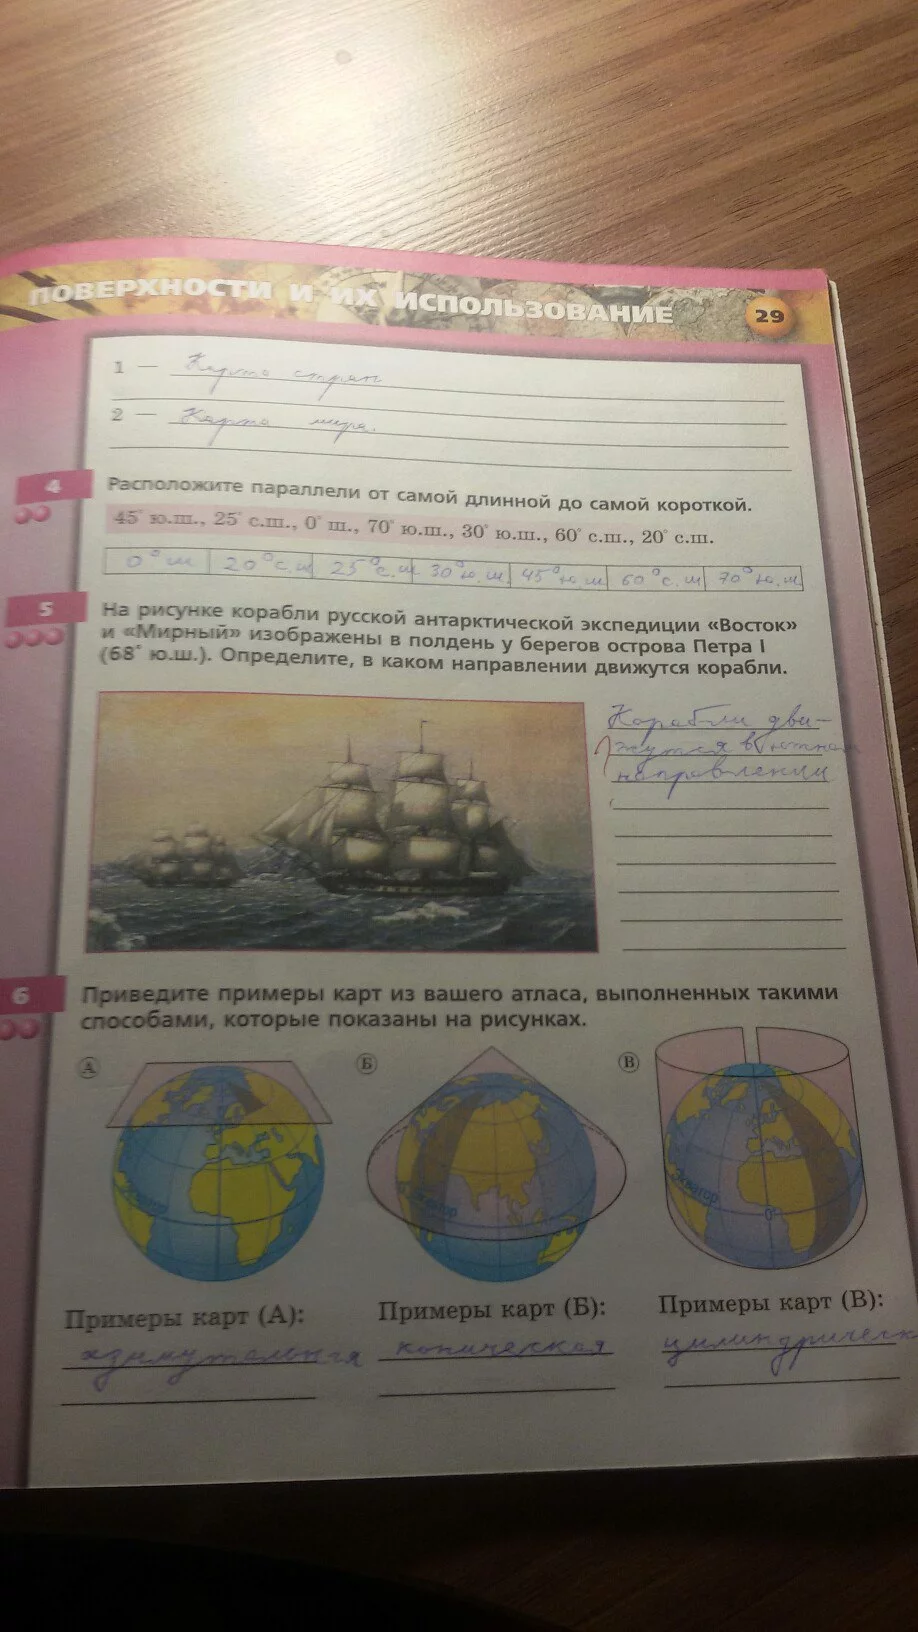 ПОВЕРХНОСТИ И ИХ ИСПОЛЬЗОВАНИЕ
29
1 — Карта стран
2 — Карта мира.
4
Расположите параллели от самой длинной до самой короткой.
45° ю.ш., 25° с.ш., 0° ш., 70° ю.ш., 30° ю.ш., 60° с.ш., 20° с.ш.
0° ш 20° с.ш 25° с.ш 30° ю.ш 45° ю.ш 60° с.ш 70° ю.ш
5
На рисунке корабли русской антарктической экспедиции «Восток»
и «Мирный» изображены в полдень у берегов острова Петра I
(68° ю.ш.). Определите, в каком направлении движутся корабли.
Корабли дви-
жутся в южном
направлении
6
Приведите примеры карт из вашего атласа, выполненных такими
способами, которые показаны на рисунках.
А Б В
Экватор Экватор Экватор
0°
Примеры карт (А): Примеры карт (Б): Примеры карт (В):
азимутальная коническая цилиндрическ